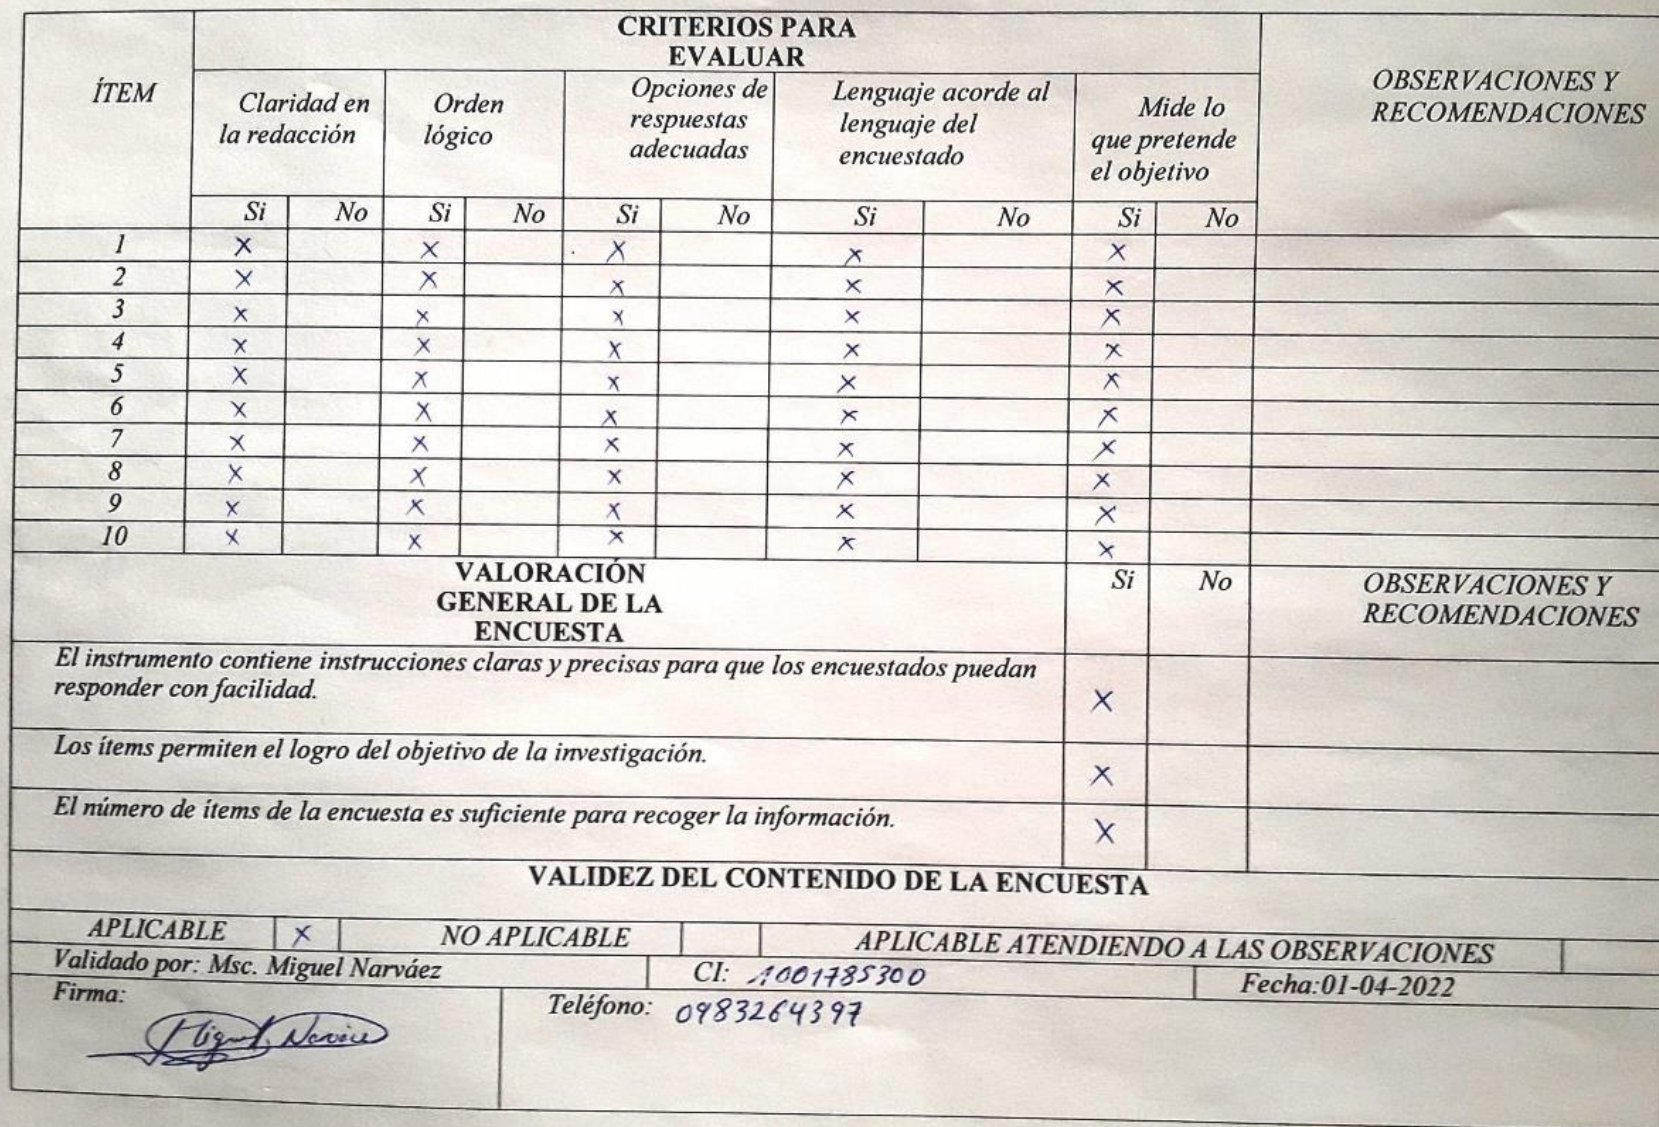 CRITERIOS PARA
EVALUAR
ÍTEM
OBSERVACIONES Y
RECOMENDACIONES
Claridad en
la redacción
Orden
lógico
Opciones de
respuestas
adecuadas
Lenguaje acorde al
lenguaje del
encuestado
Mide lo
que pretende
el objetivo
Si No Si No Si No Si No Si No
1 X X X X X
2 X X X X X
3 X X X X X
4 X X X X X
5 X X X X X
6 X X X X X
7 X X X X X
8 X X X X X
9 X X X X X
10 X X X X X
VALORACIÓN
GENERAL DE LA
ENCUESTA
Si No
OBSERVACIONES Y
RECOMENDACIONES
El instrumento contiene instrucciones claras y precisas para que los encuestados puedan
responder con facilidad.
X
Los ítems permiten el logro del objetivo de la investigación.
X
El número de ítems de la encuesta es suficiente para recoger la información.
X
VALIDEZ DEL CONTENIDO DE LA ENCUESTA
APLICABLE X NO APLICABLE APLICABLE ATENDIENDO A LAS OBSERVACIONES
Validado por: Msc. Miguel Narváez CI: 1001785300 Fecha:01-04-2022
Firma: Teléfono: 0983264397